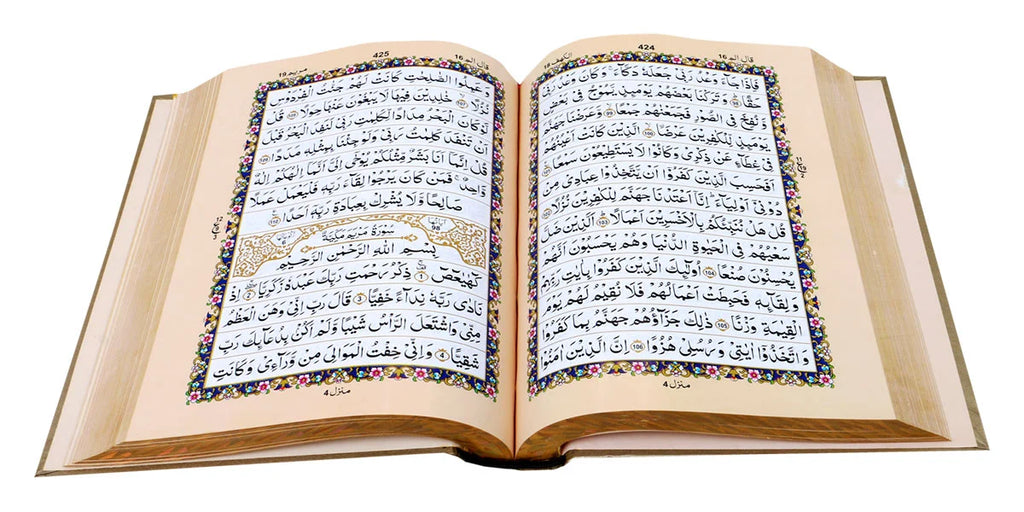 قال الم 16
424
الكهف 18
فَاِذَا جَآءَ وَعْدُ رَبِّىْ جَعَلَهٗ دَكَّآءَ ۚ وَكَانَ وَعْدُ رَبِّىْ
حَقًّا ﴿98﴾ وَتَرَكْنَا بَعْضَهُمْ يَوْمَئِذٍ يَّمُوْجُ فِىْ بَعْضٍ
وَّنُفِخَ فِى الصُّوْرِ فَجَمَعْنٰهُمْ جَمْعًا ﴿99﴾ وَّعَرَضْنَا جَهَنَّمَ
يَوْمَئِذٍ لِّلْكٰفِرِيْنَ عَرْضَا ﴿100﴾ الَّذِيْنَ كَانَتْ اَعْيُنُهُمْ
فِىْ غِطَآءٍ عَنْ ذِكْرِىْ وَكَانُوْا لَا يَسْتَطِيْعُوْنَ سَمْعًا ﴿101﴾
اَفَحَسِبَ الَّذِيْنَ كَفَرُوْۤا اَنْ يَّتَّخِذُوْا عِبَادِىْ مِنْ
دُوْنِىْۤ اَوْلِيَآءَ ؕ اِنَّاۤ اَعْتَدْنَا جَهَنَّمَ لِلْكٰفِرِيْنَ نُزُلًا ﴿102﴾
قُلْ هَلْ نُنَبِّئُكُمْ بِالْاَخْسَرِيْنَ اَعْمَالًا ﴿103﴾ اَلَّذِيْنَ ضَلَّ
سَعْيُهُمْ فِى الْحَيٰوةِ الدُّنْيَا وَهُمْ يَحْسَبُوْنَ اَنَّهُمْ
يُحْسِنُوْنَ صُنْعًا ﴿104﴾ اُولٰٓئِكَ الَّذِيْنَ كَفَرُوْا بِاٰيٰتِ رَبِّهِمْ
وَلِقَآئِهٖ فَحَبِطَتْ اَعْمَالُهُمْ فَلَا نُقِيْمُ لَهُمْ يَوْمَ
الْقِيٰمَةِ وَزْنًا ﴿105﴾ ذٰلِكَ جَزَآؤُهُمْ جَهَنَّمُ بِمَا كَفَرُوْا
وَاتَّخَذُوْۤا اٰيٰتِىْ وَرُسُلِىْ هُزُوًا ﴿106﴾ اِنَّ الَّذِيْنَ اٰمَنُوْا
منزل 4
قال الم 16
425
مريم 19
وَعَمِلُوا الصّٰلِحٰتِ كَانَتْ لَهُمْ جَنّٰتُ الْفِرْدَوْسِ
نُزُلًا ﴿107﴾ خٰلِدِيْنَ فِيْهَا لَا يَبْغُوْنَ عَنْهَا حِوَلًا ﴿108﴾ قُلْ
لَّوْ كَانَ الْبَحْرُ مِدَادًا لِّكَلِمٰتِ رَبِّىْ لَنَفِدَ الْبَحْرُ قَبْلَ
اَنْ تَنْفَدَ كَلِمٰتُ رَبِّىْ وَلَوْ جِئْنَا بِمِثْلِهٖ مَدَدًا ﴿109﴾
قُلْ اِنَّمَاۤ اَنَا بَشَرٌ مِّثْلُكُمْ يُوْحٰۤى اِلَىَّ اَنَّمَاۤ اِلٰهُكُمْ اِلٰهٌ
وَّاحِدٌ ۚ فَمَنْ كَانَ يَرْجُوْا لِقَآءَ رَبِّهٖ فَلْيَعْمَلْ عَمَلًا
صَالِحًا وَّلَا يُشْرِكْ بِعِبَادَةِ رَبِّهٖۤ اَحَدًا ﴿110﴾
اٰيَاتُهَا 98
سُوْرَةُ مَرْيَمَ مَكِّيَّةٌ
بِسْمِ اللّٰهِ الرَّحْمٰنِ الرَّحِيْمِ
كٓهٰيٰعٓصٓ ﴿1﴾ ذِكْرُ رَحْمَتِ رَبِّكَ عَبْدَهٗ زَكَرِيَّا ﴿2﴾ اِذْ
نَادٰى رَبَّهٗ نِدَآءً خَفِيًّا ﴿3﴾ قَالَ رَبِّ اِنِّىْ وَهَنَ الْعَظْمُ
مِنِّىْ وَاشْتَعَلَ الرَّاْسُ شَيْبًا وَّلَمْ اَكُنْۢ بِدُعَآئِكَ رَبِّ
شَقِيًّا ﴿4﴾ وَاِنِّىْ خِفْتُ الْمَوَالِىَ مِنْ وَّرَآءِىْ وَكَانَتِ
منزل 4